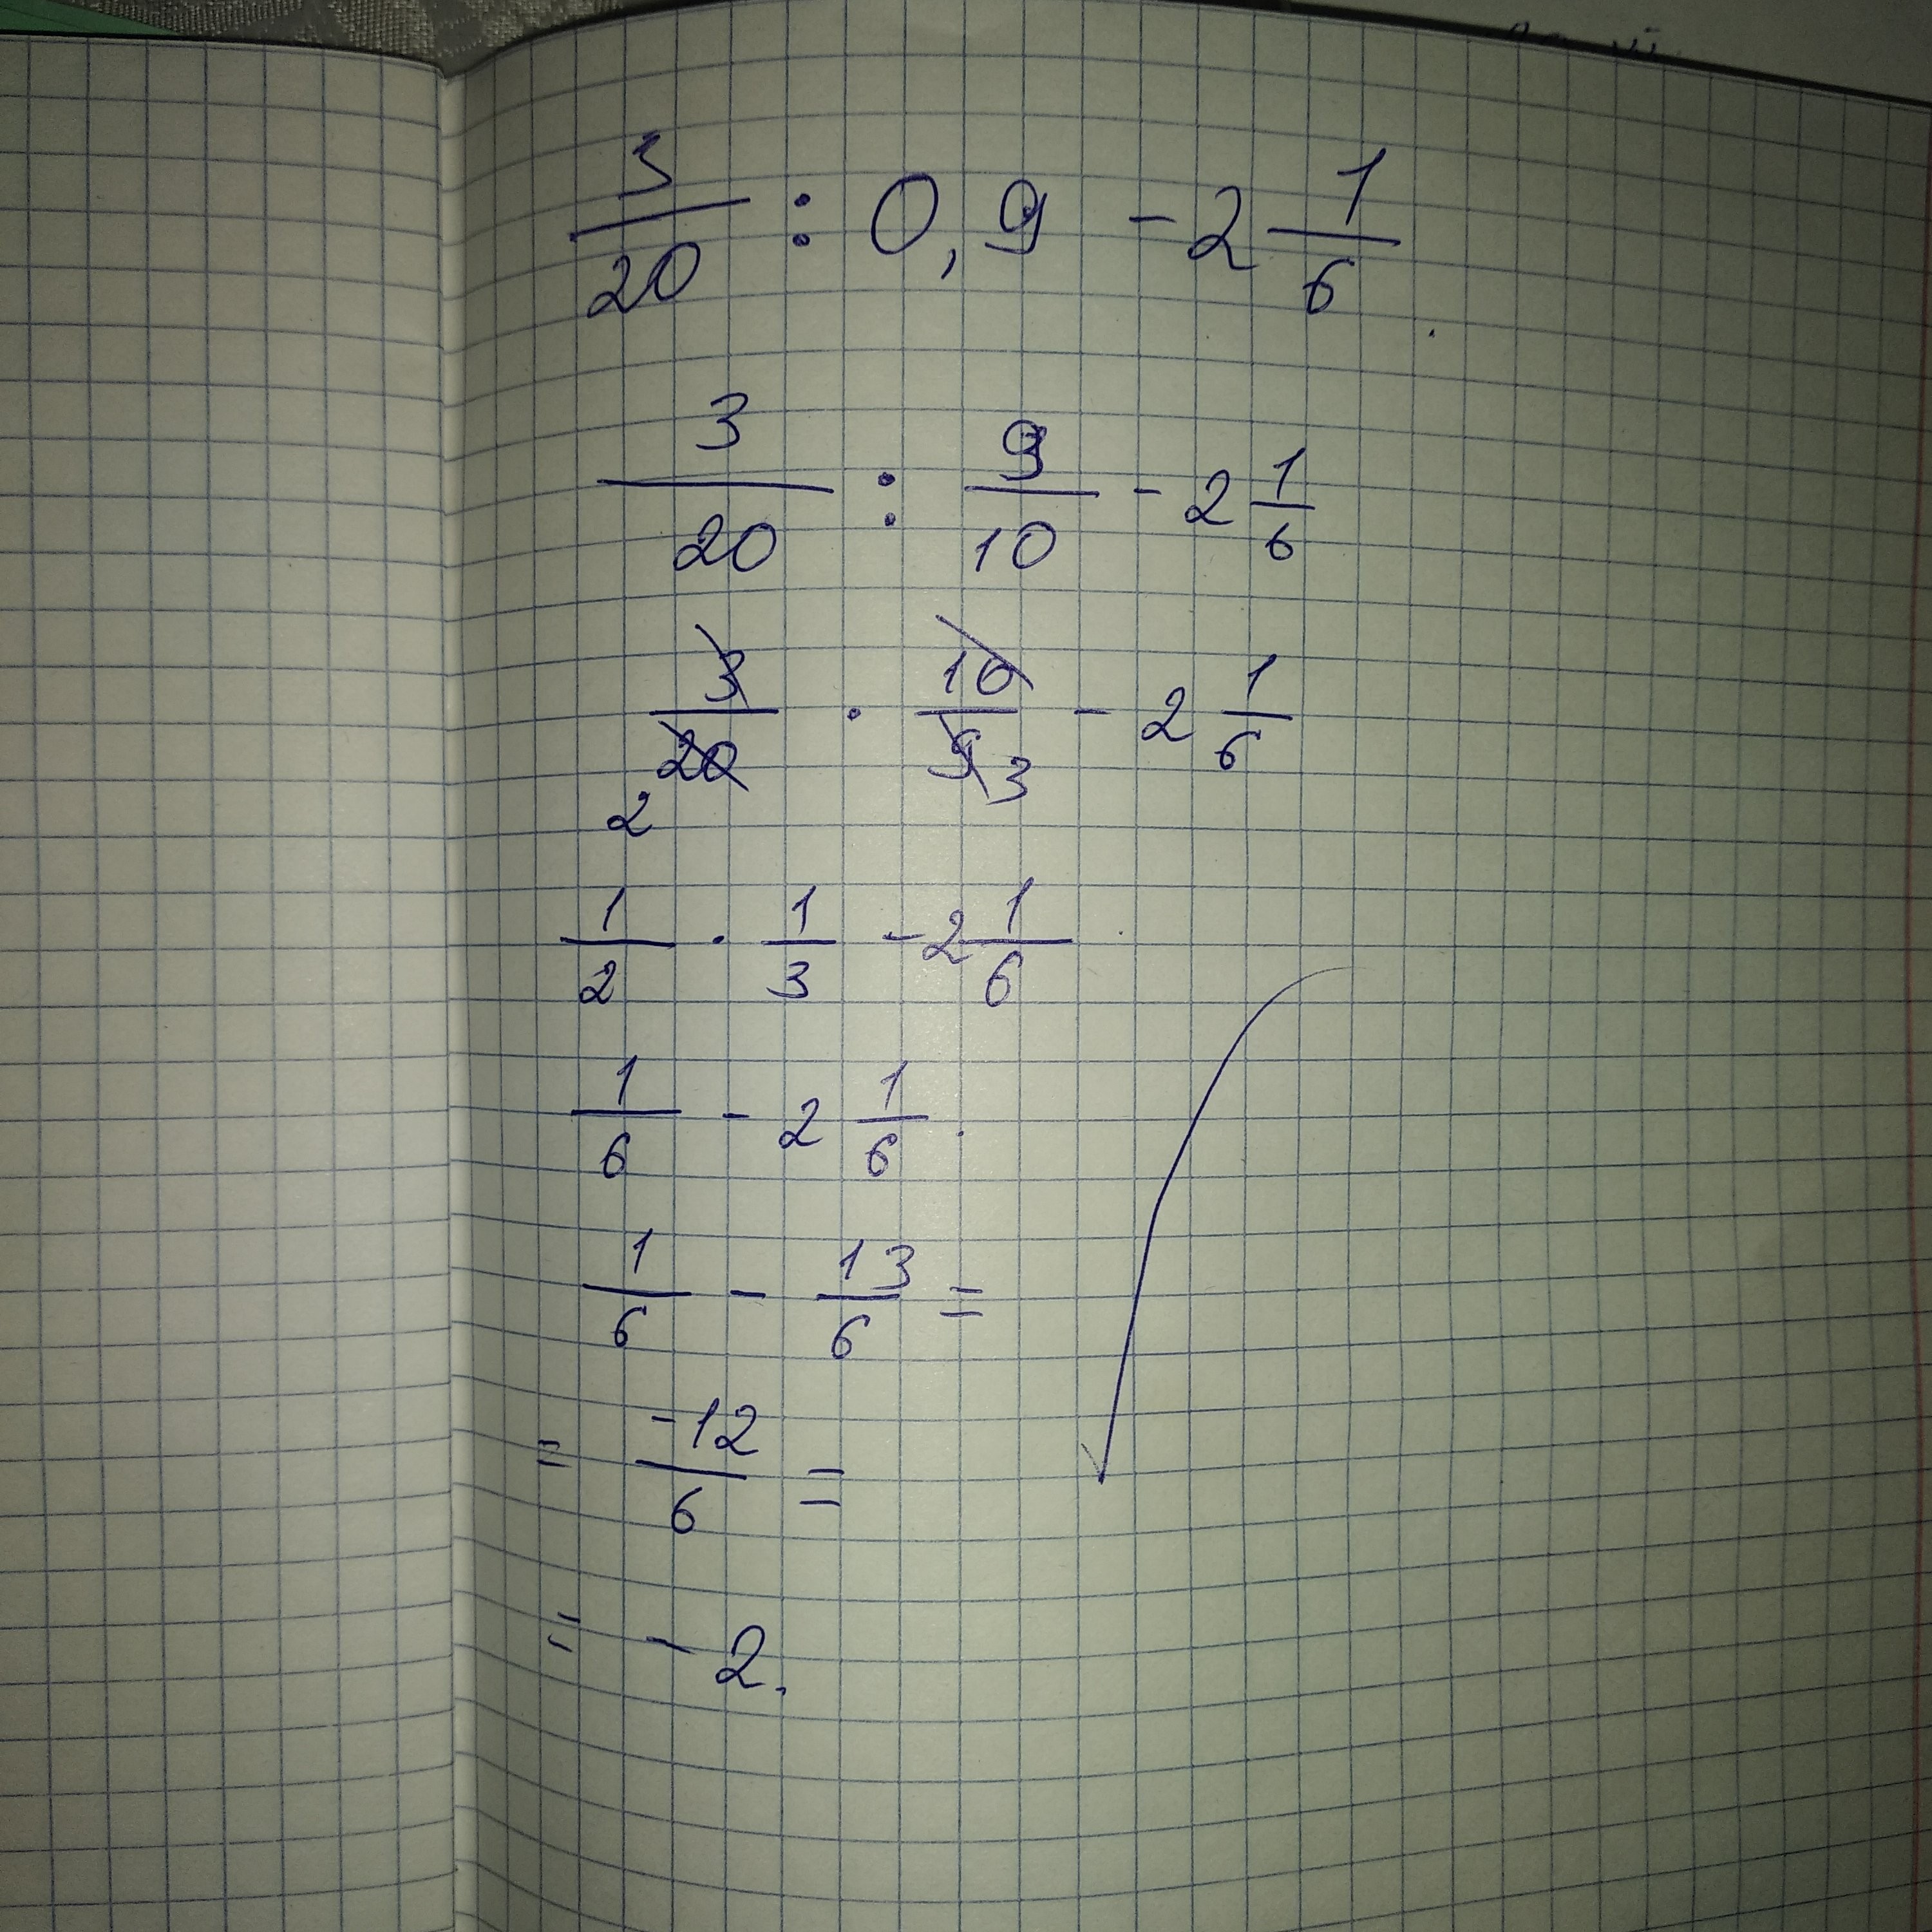 3/20 : 0,9 - 2 1/6
3/20 : 9/10 - 2 1/6
3/20 · 10/9 - 2 1/6
2 3
1/2 · 1/3 - 2 1/6
1/6 - 2 1/6
1/6 - 13/6 =
= -12/6 =
= - 2.